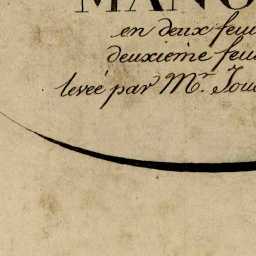 MANO
en deux feui
deuxieme feui
levée par Mr. Jou